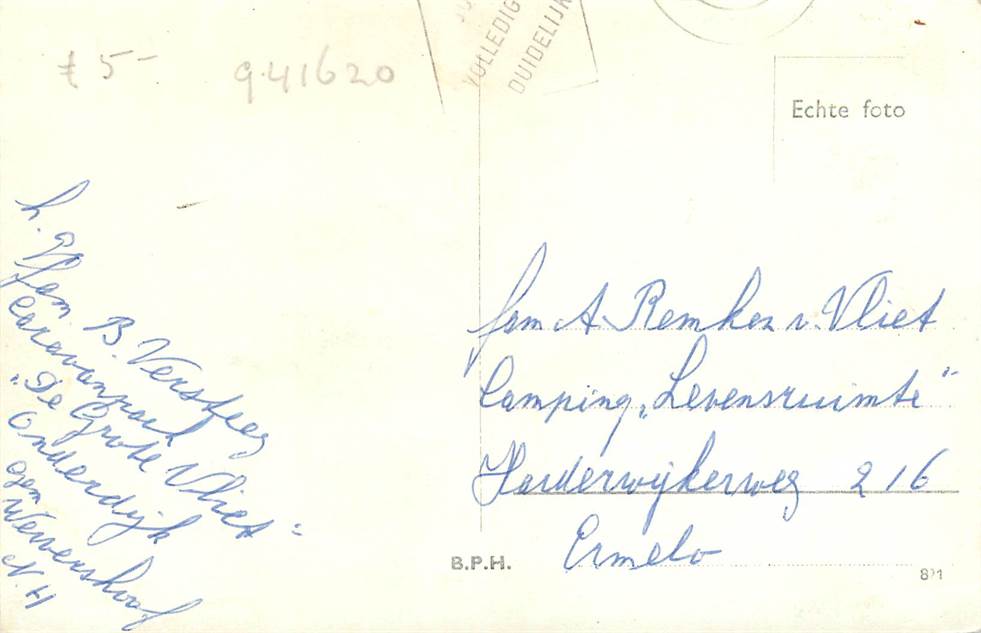 £ 5-
941620
VOLLEDIG
DUIDELIJK
Echte foto
h. gr fam. B. Versteeg
Caravanpark
"De Grote Vliet"
Onderdijk
gem
Wervershoof
N.H
fam A. Remkes v. Vliet
Camping "Levensruimte"
Harderwijkerweg 216
Ermelo
B.P.H.